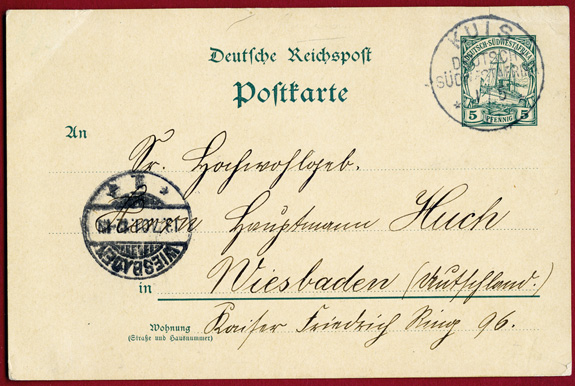 KUIS
DEUTSCH-SÜDWESTAFRIKA
DEUTSCH-
SÜDWESTAFRIKA
5 PFENNIG 5
Deutsche Reichspost
Postkarte
An
Sr. Hochwohlgeb.
Herrn Hauptmann Huch
in Wiesbaden (Deutschland.)
WIESBADEN
Wohnung
(Straße und Hausnummer)
Kaiser Friedrich Ring 96.